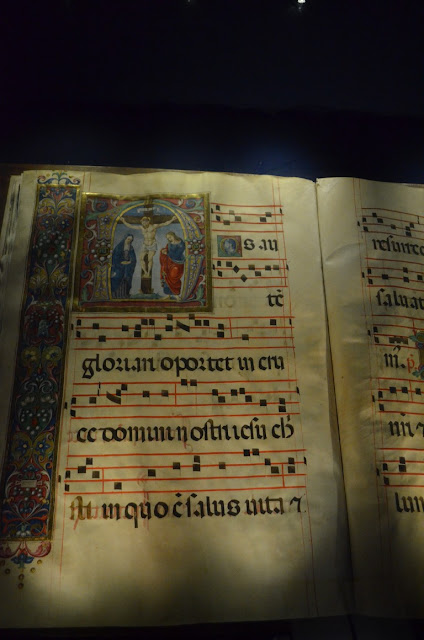 NOs au
tē
gloriari oportet in cru
ce domini nostri iesu ch̄
sti in quo ē salus uita ⁊
resurrec
saluat